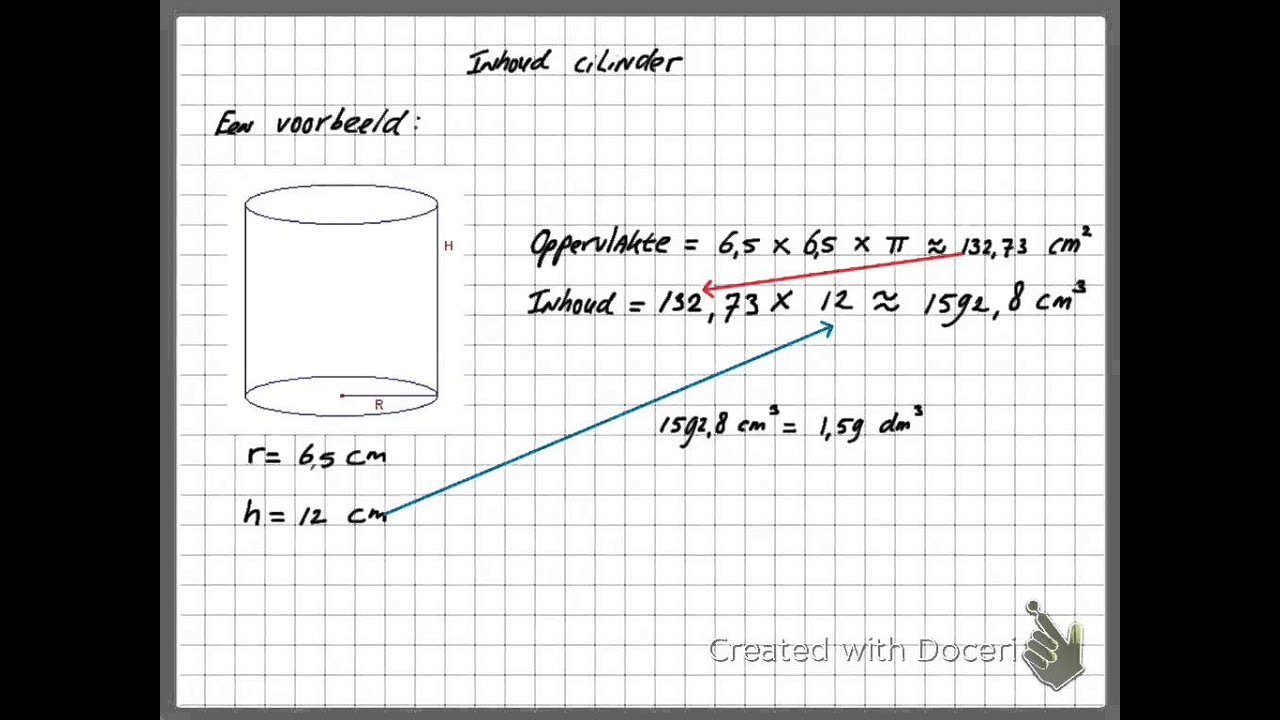 Inhoud cilinder
Een voorbeeld:
H
R
r= 6,5 cm
h= 12 cm
Oppervlakte = 6,5 x 6,5 x π ≈ 132,73 cm²
Inhoud = 132,73 x 12 ≈ 1592,8 cm³
1592,8 cm³ = 1,59 dm³
Created with Doceri